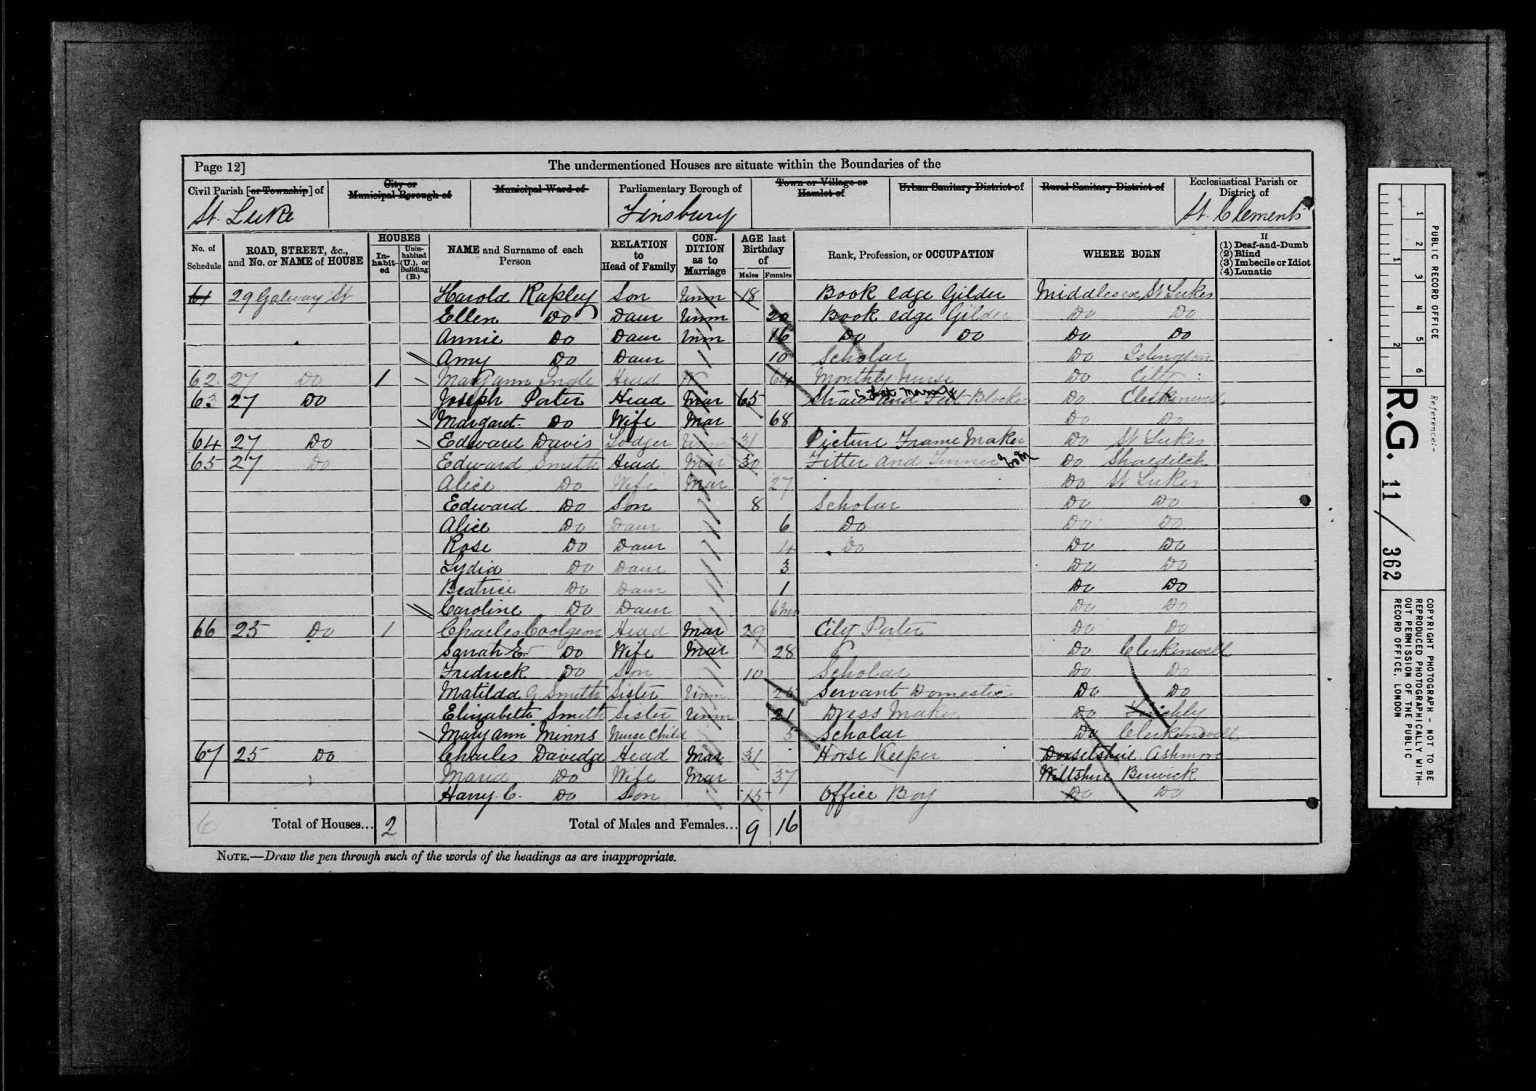 Page 12]
The undermentioned Houses are situate within the Boundaries of the
Civil Parish [or Township] of
St. Luke
City or Municipal Borough of
Municipal Ward of
Parliamentary Borough of
Finsbury
Town or Village or Hamlet of
Urban Sanitary District of
Rural Sanitary District of
Ecclesiastical Parish or District of
St. Clements
No. of Schedule
ROAD, STREET, &c., and No. or NAME of HOUSE
HOUSES
In-habit-ed
Unin-habited (U.), or Building (B.)
NAME and Surname of each Person
RELATION to Head of Family
CON-DITION as to Marriage
AGE last Birthday of
Males
Females
Rank, Profession, or OCCUPATION
WHERE BORN
If
(1) Deaf-and-Dumb
(2) Blind
(3) Imbecile or Idiot
(4) Lunatic
61 29 Galway St Harold Rapley Son Unm 18 Book edge Gilder Middlesex St Lukes
Ellen Do Daur Unm 20 Book edge Gilder Do Do
Annie Do Daur Unm 16 Do Do Do Do
Amy Do Daur 10 Scholar Do Islington
62 27 Do 1 Mary ann Ingle Head W 64 Monthly Nurse Do
63 27 Do Joseph Porter Head Mar 65 Straw and Felt Blocker Do Clerkenwell
Margaret Do Wife Mar 68 Do Do
64 27 Do Edward Davis Lodger Unm 31 Picture Frame Maker Do St Lukes
65 27 Do Edward Smith Head Mar 30 Fitter and Turner Do Shoreditch
Alice Do Wife Mar 27 Do St Lukes
Edward Do Son 8 Scholar Do Do
Alice Do Daur 6 Do Do Do
Rose Do Daur 4 Do Do Do
Lydia Do Daur 3 Do Do
Beatrice Do Daur 1 Do Do
Caroline Do Daur 6 mo Do Do
66 25 Do 1 Charles Head Mar 29 City Porter Do Do
Sarah E Do Wife Mar 28 Do Clerkenwell
Fredrick Do Son 10 Scholar Do Do
Matilda G Smith Sister Unm Servant Domestic Do Do
Elizabeth Smith Sister Unm 21 Dress Maker Do
Mary ann Minns Nurse Child 5 Scholar Do Clerkenwell
67 25 Do Charles Davidge Head Mar 31 Horse Keeper Dorsetshire Ashmore
Maria Do Wife Mar 37 Wiltshire Berwick
Harry C. Do Son 15 Office Boy Do Do
6
Total of Houses... 2
Total of Males and Females... 9 16
NOTE.—Draw the pen through such of the words of the headings as are inappropriate.
PUBLIC RECORD OFFICE
1 2 3 4 5 6
1 2
Reference:-
R.G. 11 / 362
COPYRIGHT PHOTOGRAPH - NOT TO BE REPRODUCED PHOTOGRAPHICALLY WITH-OUT PERMISSION OF THE PUBLIC RECORD OFFICE, LONDON